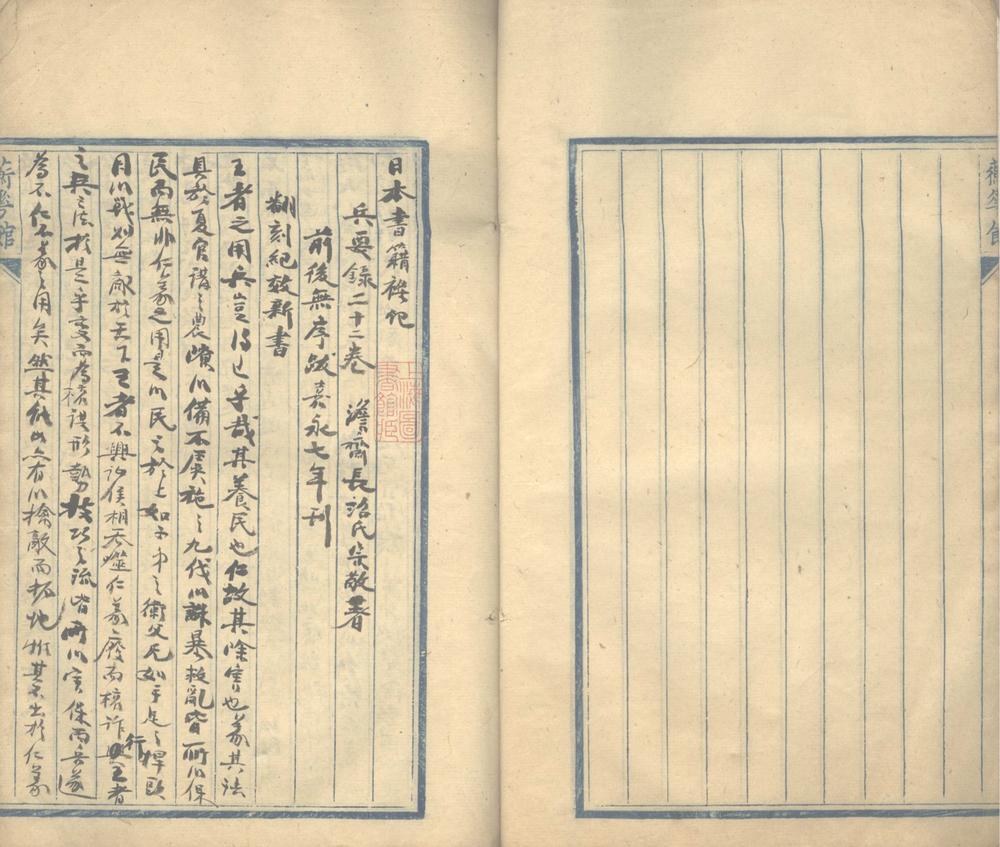 日本書籍襍記
兵要錄二十二卷 澹齋長沼氏宗敬著
前後無序跋嘉永七年刊
翻刻紀效新書
王者之用兵豈得已乎哉其養民也仁故其除害也義其法
具於夏官講之農隙以備不虞施之九伐以誅暴救亂皆所以保
民而無非仁義之用是以民之於上如子弟之衛父兄如手足之捍頭
目以戰則無敵於天下王者不興諸侯相吞噬仁義廢而權詐興王者
行
之兵法於是乎變而為權謀形勢技巧之流皆所以害保而兵遂
為不仁不義之用矣然其能亦有以擒敵而拓地惟其不出於仁義
上海圖
書館
蘅華館
蘅華館